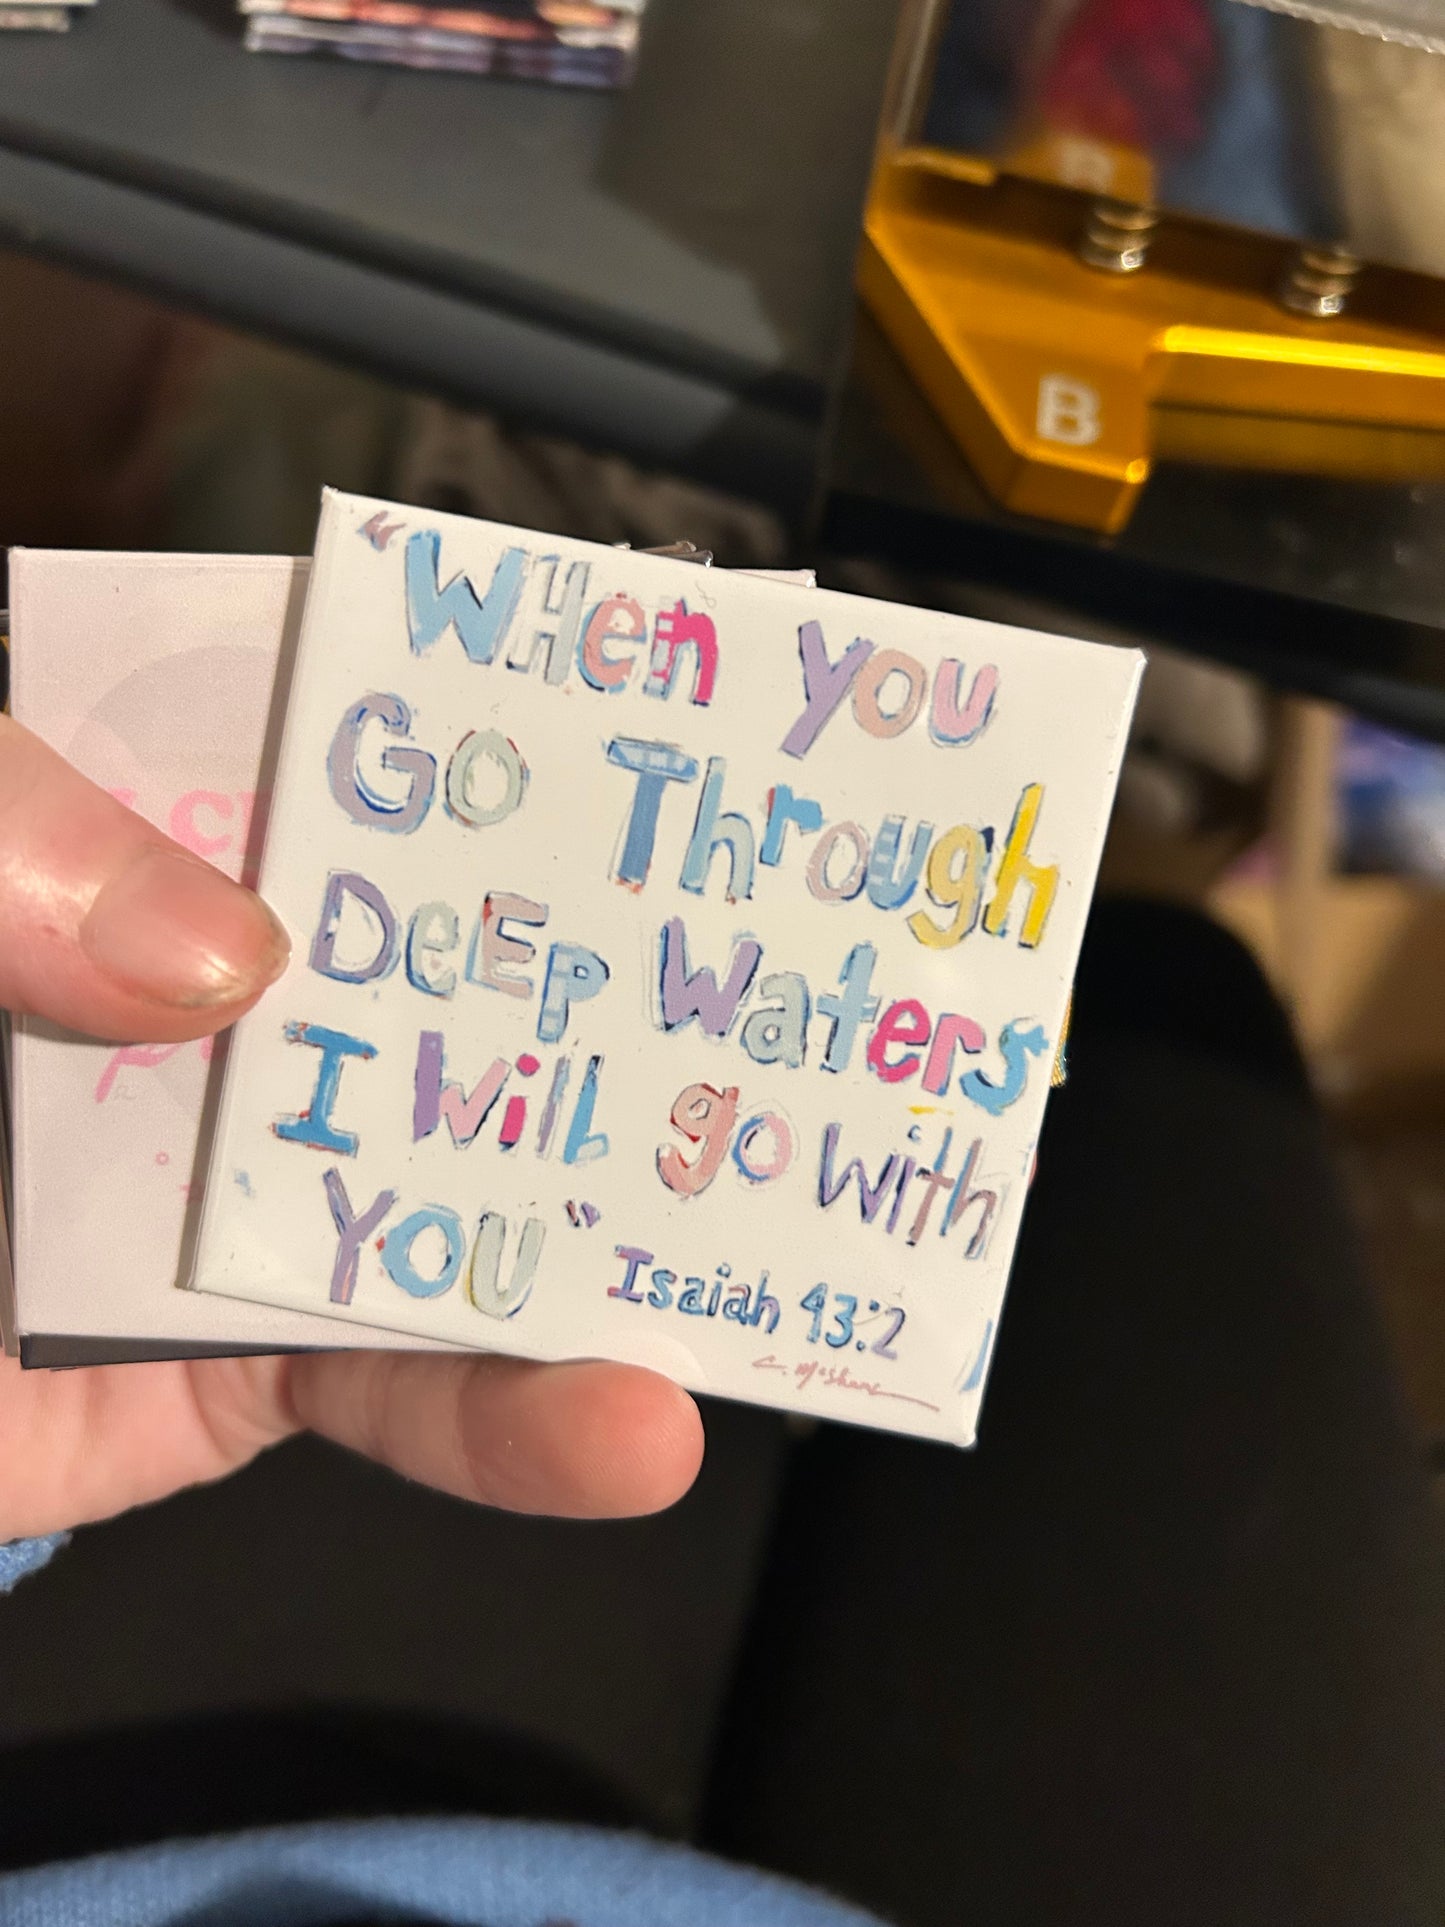 "When you
Go Through
DeEp Waters
I Will go with
YOU"
Isaiah 43:2
B